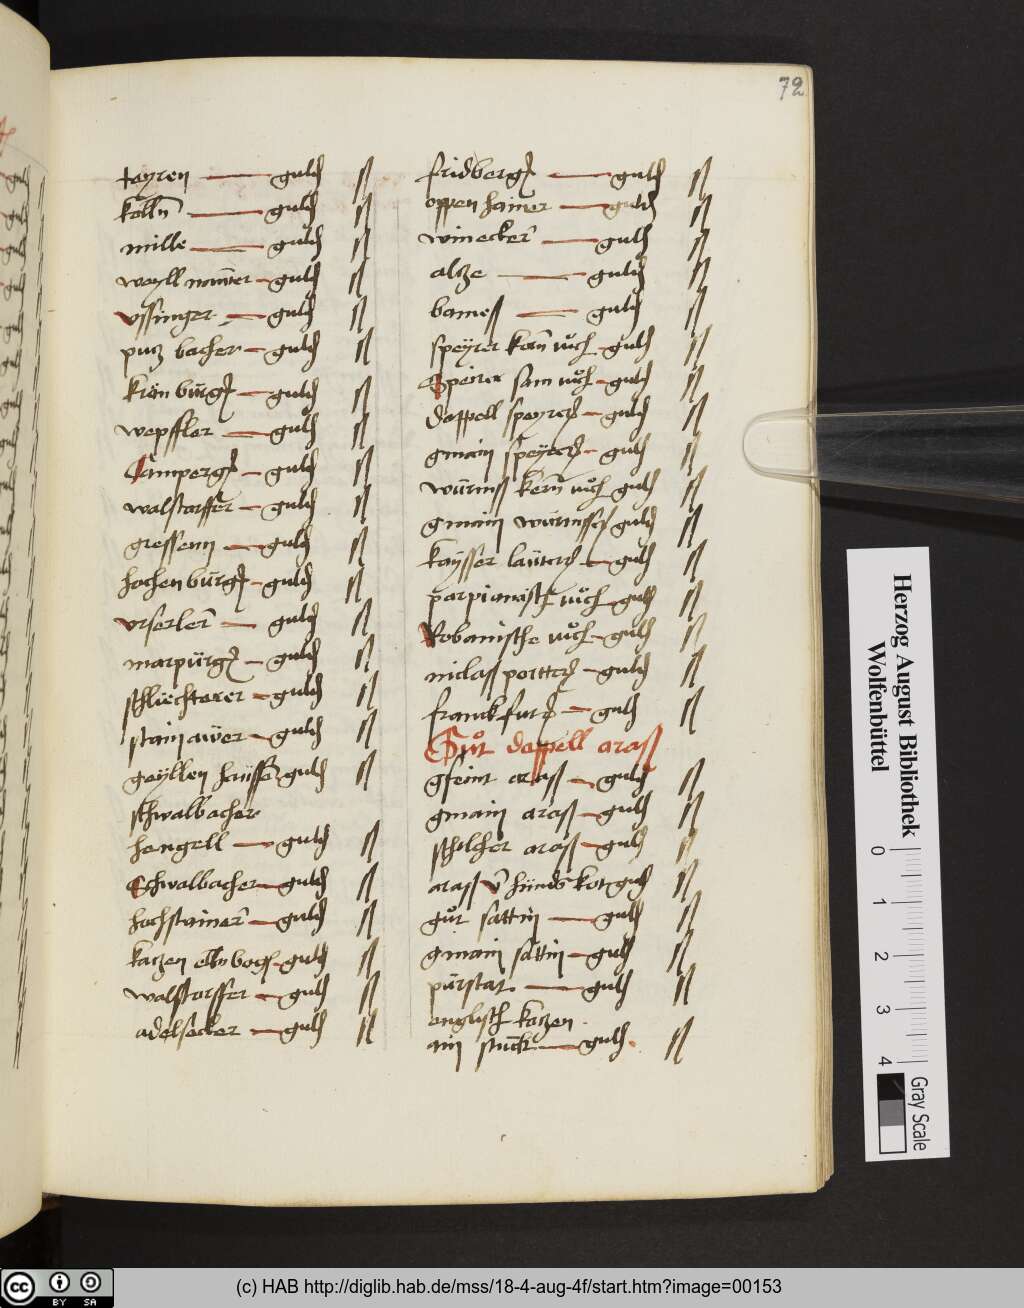 72
teyren guld
kölln guld
mille guld
weyll nawer guld
vssinger guld
putz bacher guld
kron burg guld
wepffler guld
Camperg guld
walstorffer guld
gressenn guld
hochen burg guld
vrseler guld
marpürg guld
schlüechterer guld
stain awer guld
geyllen haüsser guld
schwalbacher
hengell guld
Schwalbacher guld
hochstainer guld
katzen elln bogn guld
walstorffer guld
adelsecker guld
fridberg guld
oppen hamer guld
winecker guld
altze guld
bames guld
speyrer kern tuch guld
Speirer sam tuch guld
doppell speyrer guld
gmain speyrer guld
würmss kern tuch guld
gmain würmsser guld
kaysser lauter guld
parpianisch tuch guld
Robanische tuch guld
niclass portter guld
franckfurt guld
Gut doppell arass
gfeint arass guld
gmain arass guld
schilcher arass guld
arass hundskot guld
gut sattin guld
gmain sattin guld
purstat guld
englisch katzen
ain stuck guld
Herzog August Bibliothek
Wolfenbüttel
0 1 2 3 4
Gray Scale
cc BY SA
(c) HAB http://diglib.hab.de/mss/18-4-aug-4f/start.htm?image=00153